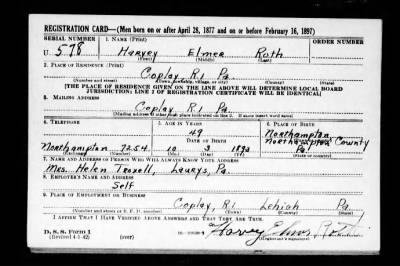 REGISTRATION CARD—(Men born on or after April 28, 1877 and on or before February 16, 1897)
SERIAL NUMBER 1. NAME (Print) ORDER NUMBER
U 578 Harvey Elmer Roth
(First) (Middle) (Last)
2. PLACE OF RESIDENCE (Print)
Coplay R1 Pa.
(Number and street) (Town, township, village, or city) (County) (State)
[THE PLACE OF RESIDENCE GIVEN ON THE LINE ABOVE WILL DETERMINE LOCAL BOARD
JURISDICTION; LINE 2 OF REGISTRATION CERTIFICATE WILL BE IDENTICAL]
3. MAILING ADDRESS
Coplay R1 Pa.
[Mailing address if other than place indicated on line 2. If same insert word same]
4. TELEPHONE 5. AGE IN YEARS 6. PLACE OF BIRTH
49 Northampton
DATE OF BIRTH Northampton County
Northampton 7254 10 3 1892 Pa.
(Exchange) (Number) (Mo.) (Day) (Yr.) (State or country)
7. NAME AND ADDRESS OF PERSON WHO WILL ALWAYS KNOW YOUR ADDRESS
Mrs. Helen Troxell, Laurys, Pa.
8. EMPLOYER'S NAME AND ADDRESS
Self
9. PLACE OF EMPLOYMENT OR BUSINESS
Coplay, R1 Lehigh Pa.
(Number and street or R. F. D. number) (Town) (County) (State)
I AFFIRM THAT I HAVE VERIFIED ABOVE ANSWERS AND THAT THEY ARE TRUE.
D. S. S. Form 1
(Revised 4-1-42) (over) Harvey Elmer Roth
(Registrant's signature)